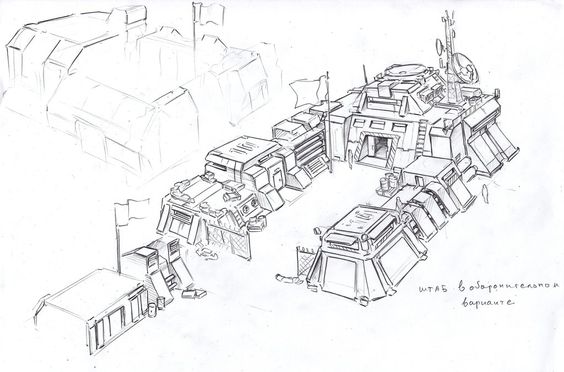 ШТАБ в оборонительном
варианте